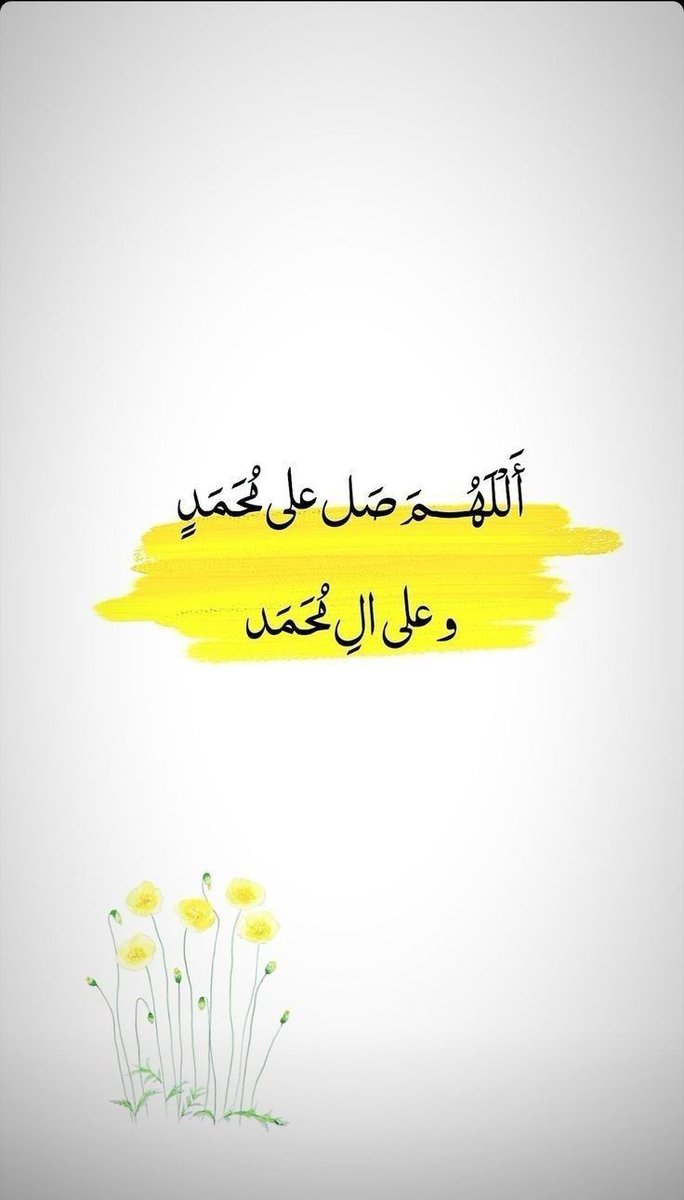 أَللْهُمَ صَل على مُحَمَدٍ
و على الِ مُحَمَد